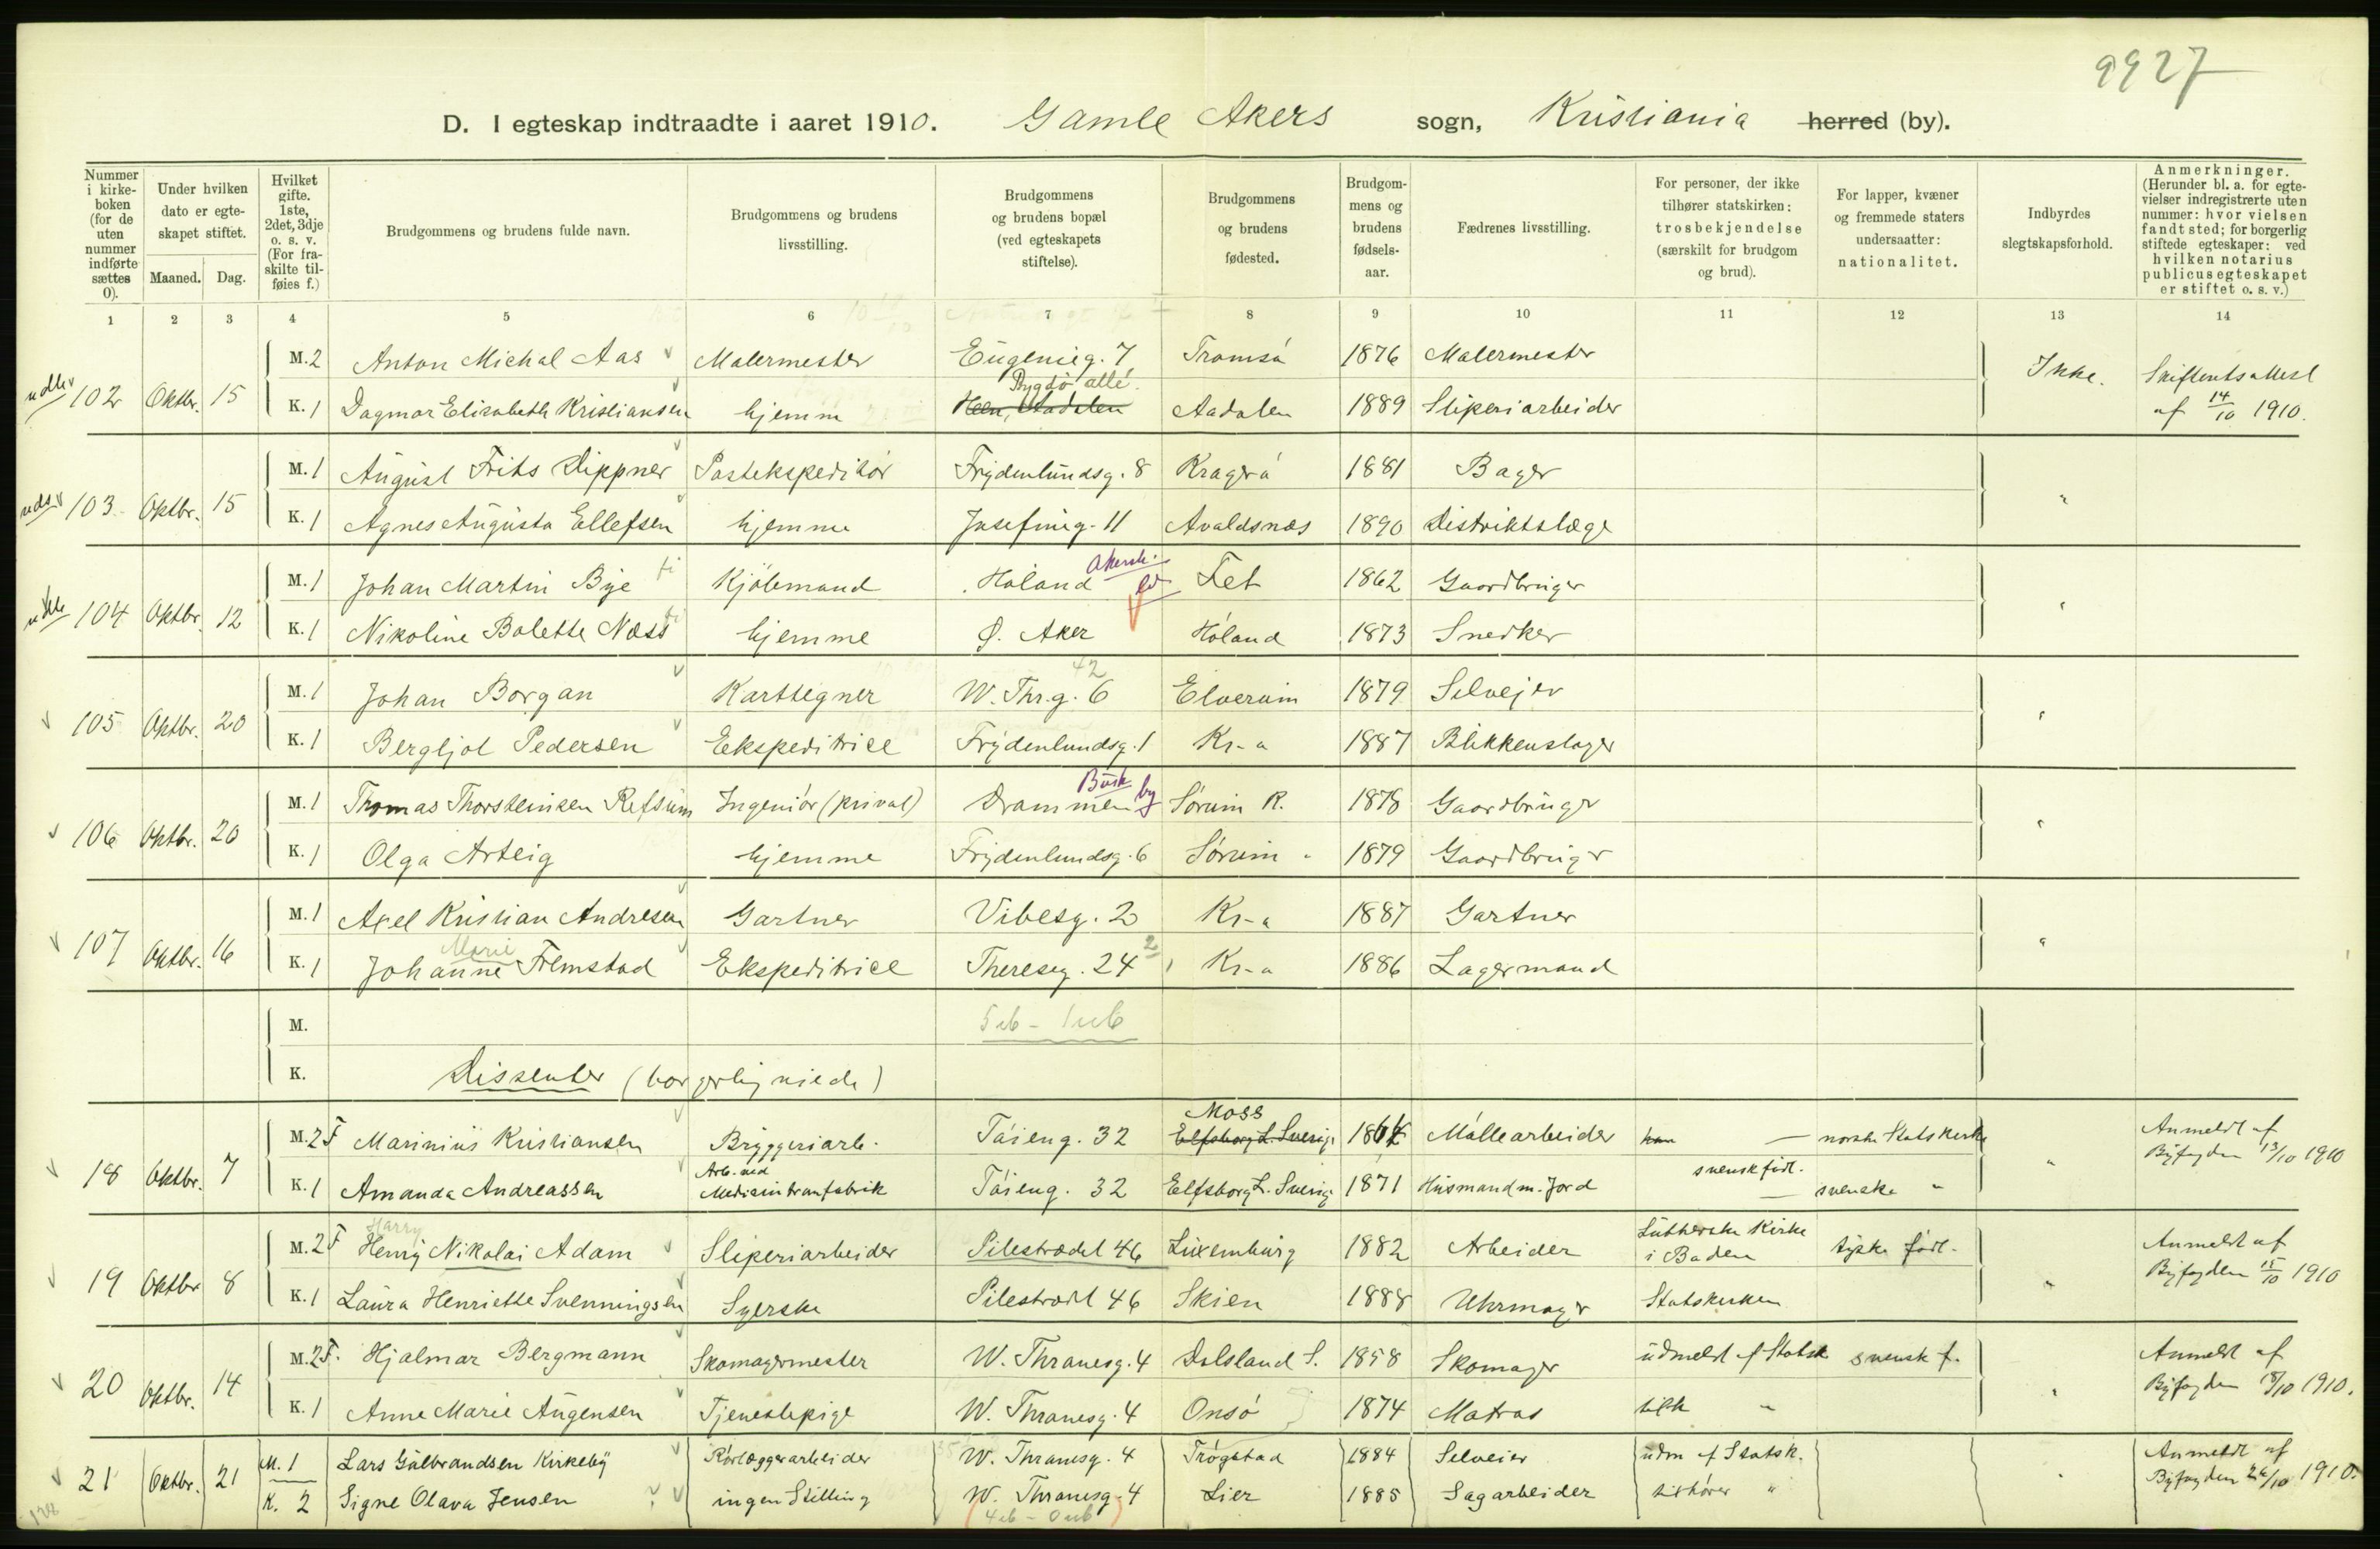 9927
D. I egteskap indtraadte i aaret 1910. Gamle Akers sogn, Kristiania herred (by).
Nummer i kirke-boken (for de uten nummer indførte sættes 0).
Under hvilken dato er egte-skapet stiftet.
Maaned. Dag.
Hvilket gifte. 1ste, 2det, 3dje o. s. v. (For fra-skilte til-føies f.)
Brudgommens og brudens fulde navn.
Brudgommens og brudens livsstilling.
Brudgommens og brudens bopæl (ved egteskapets stiftelse).
Brudgommens og brudens fødested.
Brudgom-mens og brudens fødsels-aar.
Fædrenes livsstilling.
For personer, der ikke tilhører statskirken: trosbekjendelse (særskilt for brudgom og brud).
For lapper, kvæner og fremmede staters undersaatter: nationalitet.
Indbyrdes slegtskapsforhold.
Anmerkninger. (Herunder bl. a. for egte-vielser indregistrerte uten nummer: hvor vielsen fandt sted; for borgerlig stiftede egteskaper: ved hvilken notarius publicus egteskapet er stiftet o. s. v.)
1 2 3 4 5 6 7 8 9 10 11 12 13 14
M. 2 Anton Michal Aas Malermester Eugenieg. 7 Tromsö 1876 Malermester
102 Oktbr. 15 Ikke. Skifteretsattest af 14/10 1910.
Bygdö allé.
K. 1 Dagmar Elisabeth Kristiansen hjemme Heen, Aadalen Aadalen 1889 Sliperiarbeider
M. 1 August Frits Dippner Postekspeditör Frydenlundsg. 8 Kragerö 1881 Bager
103 Oktbr. 15 "
K. 1 Agnes Augusta Ellefsen hjemme Josefineg. 11 Avaldsnæs 1890 Distriktslæge
M. 1 Johan Martin Bye Kjöbmand Höland Fet 1862 Gaardbruger
104 Oktbr. 12 "
K. 1 Nikoline Bolette Næss hjemme Ö. Aker Höland 1873 Snedker
42
M. 1 Johan Borgan Karttegner W. Thr.g. 6 Elverum 1879 Selvejer
105 Oktbr. 20 "
K. 1 Bergljot Pedersen Ekspeditrice Frydenlundsg. 1 Kr-a 1887 Blikkenslager
Busk by
M. 1 Thomas Thorsteinsen Refsum Ingeniör (privat) Drammen Sörum R. 1878 Gaardbruger
106 Oktbr. 20 "
K. 1 Olga Arteig hjemme Frydenlundsg. 6 Sörum " 1879 Gaardbruger
M. 1 Axel Kristian Andresen Gartner Vibesg. 2 Kr-a 1887 Gartner
107 Oktbr. 16 "
Marie
K. 1 Johanne Fremstad Ekspeditrice Thereseg. 24 Kr-a 1886 Lagermand
M.
K. Dissenter (borgerlig viede)
Moss
M. 2 F Marinius Kristiansen Bryggeriarb. Töieng. 32 Elfsborg L. Sverige 1864 Möllearbeider han — norske Statskirke Anmeldt af Byfogden 13/10 1910
18 Oktbr. 7 "
Arb. ved
K. 1 Amanda Andreassen Medicintranfabrik Töieng. 32 Elfsborg L. Sverige 1871 Husmand m. Jord svensk födt. — svenske "
Harry
M. 2 F Henry Nikolai Adam Sliperiarbeider Pilestrædet 46 Luxemburg 1882 Arbeider Lutherske Kirke i Baden tyske födt. Anmeldt af Byfogden 15/10 1910
19 Oktbr 8 "
K. 1 Laura Henriette Svenningsen Syerske Pilestrædt 46 Skien 1888 Uhrmager Statskirken
M. 2 F. Hjalmar Bergmann Skomagermester W. Thranesg. 4 Dalsland S. 1858 Skomager udmeldt af Statsk svensk f. Anmeldt af Byfogden 18/10 1910.
20 Oktbr. 14 "
K. 1 Anne Marie Augensen Tjenestepige W. Thranesg. 4 Onsö 1874 Matros tilh "
M. 1 Lars Gulbrandsen Kirkeby Rörlæggerarbeider W. Thranesg. 4 Trögstad 1884 Selveier udm af Statsk. Anmeldt af Byfogden 26/10 1910.
21 Oktbr. 21
K. 2 Signe Olava Jensen ingen Stilling W. Thranesg. 4 Lier 1885 Sagarbeider tilhörer "